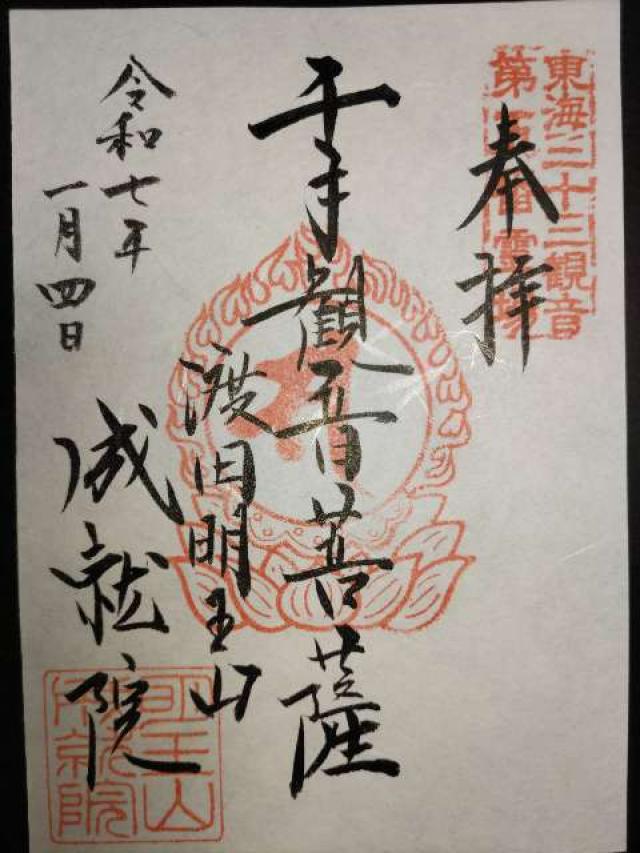 東海三十三観音
第 番靈場
奉拝
千手観音菩薩
渡旧明王山
成就院
令和七年
一月四日
明王山
成就院